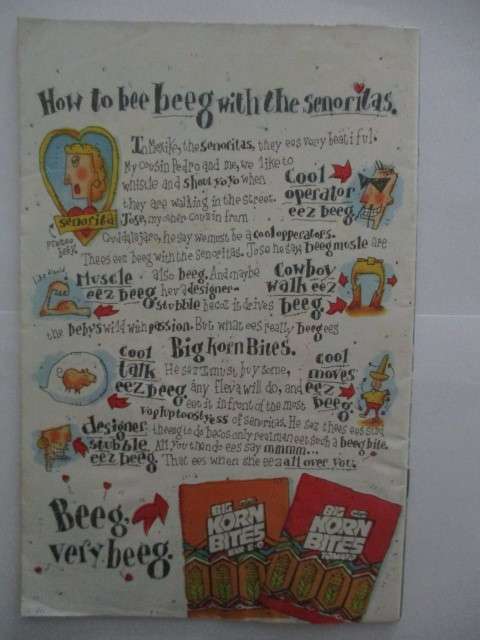 How to bee beeg with the senoritas.
In Mexike, the senoritas, they ees very beatiful.
My cousin Pedro and me, we like to
whisule and shout yo yo when
they are walking in the street.
Jose, my other cousin from
Guadalajaro, he say we must be a cool opperators.
Thees eez beeg with the senoritas. Jose he say, beeg musle are
also beeg. And maybe
hev a designer
stubble becoz it drives
the bebys wild with passion. But what ees really beeg ees
Big Korn Bites.
He sez I must buy some,
any fleva will do, and
eet it in front of the most
voluptoostyess of senoritas. He sez thees ees
theeng to do becos only real man eet such a beeg bite.
All you then do ees say mmmm...
That ees when she eez all over you.
senorita
pretee
beeg
Cool
operator
eez beeg
Muscle
eez beeg
Cowboy
walk eez
beeg
cool
talk
eez beeg
cool
moves
eez
beeg
designer
stubble
eez beeg
Beeg,
very beeg.
BIG
KORN
BITES
BAR-B-Q
BIG
KORN
BITES
TOMATO